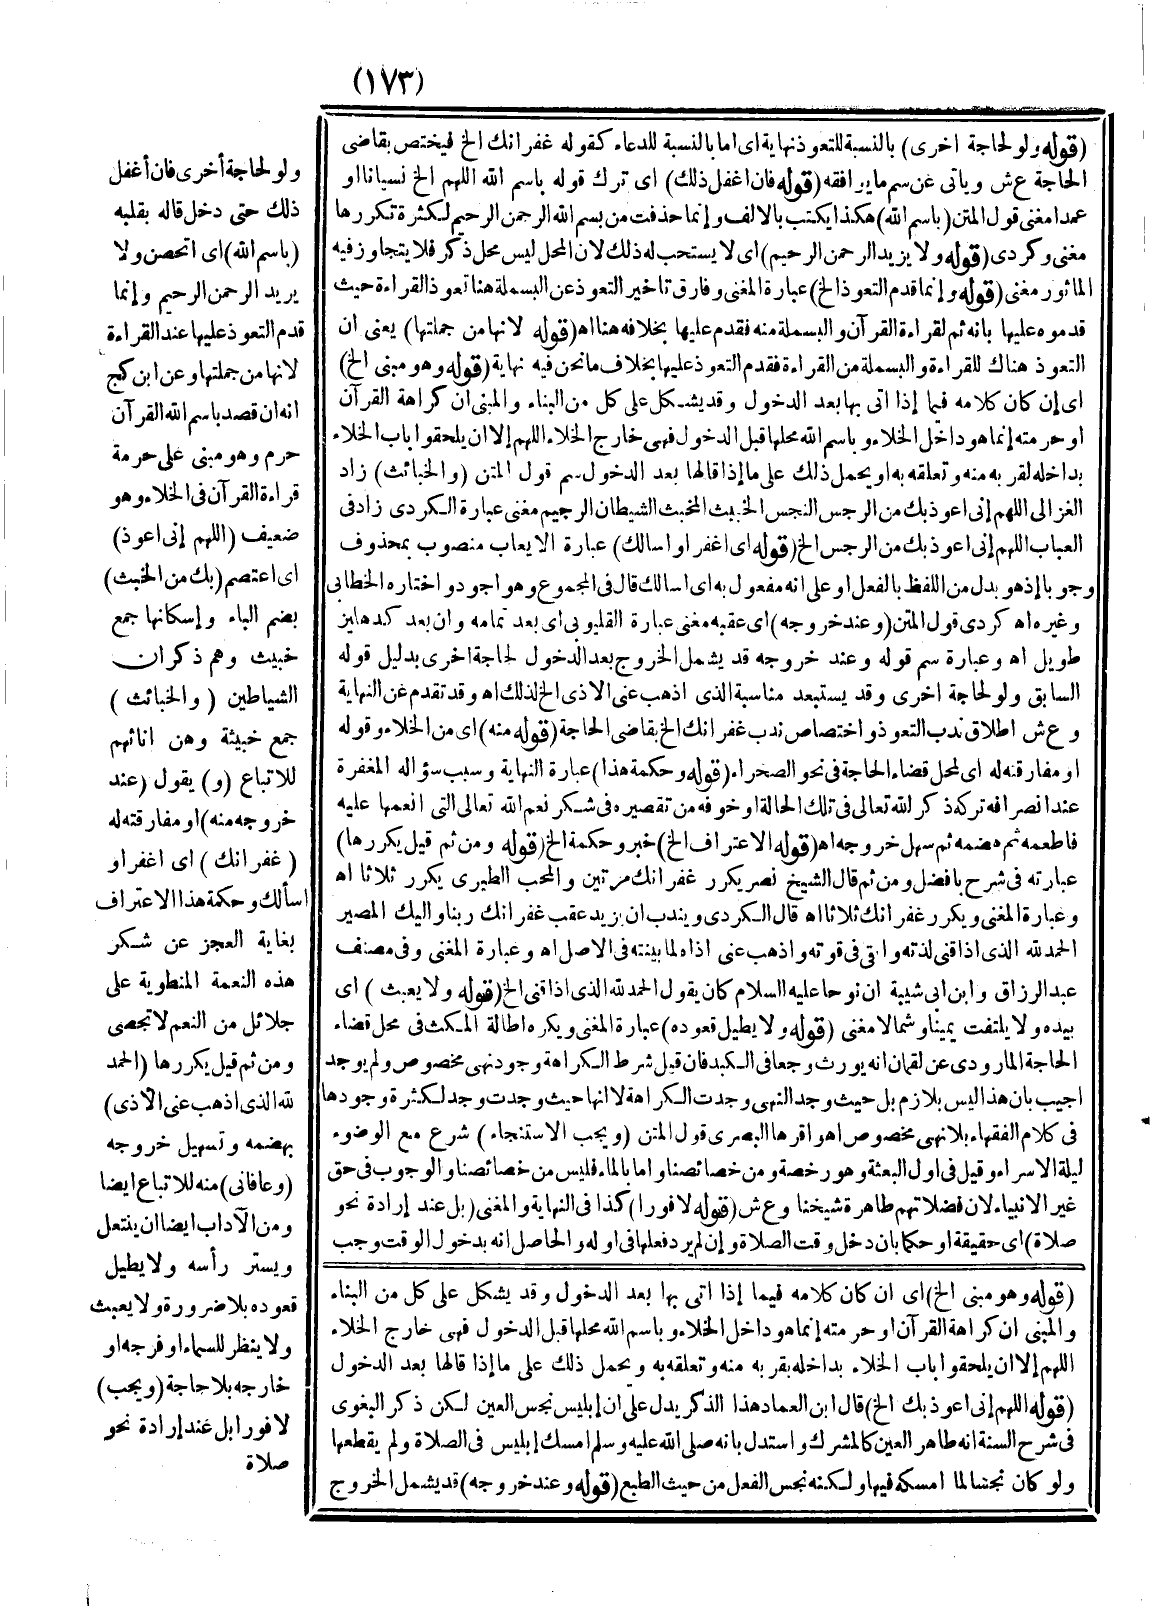 (١٧٣)
(قوله ولو لحاجة اخرى) بالنسبة للتعوذ نهاية اى اما بالنسبة للدعاء كقوله غفرانك الخ فيختص بقاضى
الحاجة ع ش وياتى عن سم ما يرافقه (قوله فان اغفل ذلك) اى ترك قوله باسم الله اللهم الخ نسيانا او
عمدا مغنى قول المتن (باسم الله) هكذا يكتب بالالف وإنما حذفت من بسم الله الرحمن الرحيم لكثرة تكررها
مغنى وكردى (قوله ولا يزيد الرحمن الرحيم) اى لا يستحب له ذلك لان المحل ليس محل ذكر فلا يتجاوز فيه
المأثور مغنى (قوله وإنما قدم التعوذ الخ) عبارة المغنى وفارق تاخير التعوذ عن البسملة هنا تعوذ القراءة حيث
قدموه عليها بانه ثم لقراءة القرآن والبسملة منه فقدم عليها بخلافه هنا اه (قوله لانها من جملتها) يعنى ان
التعوذ هناك للقراءة والبسملة من القراءة فقدم التعوذ عليها بخلاف ما نحن فيه نهاية (قوله وهو مبنى الخ)
اى إن كان كلامه فيما إذا اتى بها بعد الدخول وقد يشكل على كل من البناء والمبنى ان كراهة القرآن
او حرمته إنما هو داخل الخلاء وباسم الله محلها قبل الدخول فهى خارج الخلاء اللهم إلا ان يلحقوا باب الخلاء
بداخله لقربه منه وتعلقه به او يحمل ذلك على ما إذا قالها بعد الدخول سم قول المتن (والخبائث) زاد
الغزالى اللهم إنى اعوذ بك من الرجس النجس الخبيث المخبث الشيطان الرجيم مغنى عبارة الكردى زاد فى
العباب اللهم إنى اعوذ بك من الرجس الخ (قوله اى اغفر او اسالك) عبارة الايعاب منصوب بمحذوف
وجوبا إذ هو بدل من اللفظ بالفعل او على انه مفعول به اى اسالك قال فى المجموع وهو اجود واختاره الخطابى
وغيره اه كردى قول المتن (وعند خروجه) اى عقبه مغنى عبارة القليوبى اى بعد تمامه وان بعد كدهليز
طويل اه وعبارة سم قوله وعند خروجه قد يشمل الخروج بعد الدخول لحاجة اخرى بدليل قوله
السابق ولو لحاجة اخرى وقد يستبعد مناسبة الذى اذهب عنى الاذى الخ لذلك اه وقد تقدم عن النهاية
و ع ش اطلاق ندب التعوذ واختصاص ندب غفرانك الخ بقاضى الحاجة (قوله منه) اى من الخلاء وقوله
او مفارقته له اى لمحل قضاء الحاجة فى نحو الصحراء (قوله وحكمة هذا) عبارة النهاية وسبب سؤاله المغفرة
عند انصرافه تركه ذكر الله تعالى فى تلك الحالة او خوفه من تقصيره فى شكر نعم الله تعالى التى انعمها عليه
فاطعمه ثم هضمه ثم سهل خروجه اه (قوله الاعتراف الخ) خبر وحكمة الخ (قوله ومن ثم قيل يكررها)
عبارته فى شرح بافضل ومن ثم قال الشيخ نصر يكرر غفرانك مرتين والمحب الطبرى يكرر ثلاثا اه
وعبارة المغنى ويكرر غفرانك ثلاثا اه قال الكردى ويندب ان يزيد عقب غفرانك ربنا واليك المصير
الحمد لله الذى اذاقنى لذته وابقى فى قوته واذهب عنى اذاه لما بينته فى الاصل اه وعبارة المغنى وفى مصنف
عبد الرزاق وابن ابى شيبة ان نوحا عليه السلام كان يقول الحمد لله الذى اذاقنى الخ (قوله ولا يعبث) اى
بيده ولا يلتفت يمينا وشمالا مغنى (قوله ولا يطيل قعوده) عبارة المغنى ويكره اطالة المكث فى محل قضاء
الحاجة لما روى عن لقمان انه يورث وجعا فى الكبد فان قيل شرط الكراهة وجود نهى مخصوص ولم يوجد
اجيب بان هذا ليس بلازم بل حيث وجد النهى وجدت الكراهة لا انها حيث وجدت وجد لكثرة وجودها
فى كلام الفقهاء بلا نهى مخصوص اه واقرها البصرى قول المتن (ويجب الاستنجاء) شرع مع الوضوء
ليلة الاسراء وقيل فى اول البعثة وهو رخصة ومن خصائصنا واما بالماء فليس من خصائصنا والوجوب فى حق
غير الانبياء لان فضلاتهم طاهرة شيخنا و ع ش (قوله لا فورا) كذا فى النهاية والمغنى (بل عند إرادة نحو
صلاة) اى حقيقة او حكما بان دخل وقت الصلاة وإن لم يرد فعلها فى اوله والحاصل انه بدخول الوقت وجب
(قوله وهو مبنى الخ) اى ان كان كلامه فيما إذا اتى بها بعد الدخول وقد يشكل على كل من البناء
والمبنى ان كراهة القرآن او حرمته إنما هو داخل الخلاء وباسم الله محلها قبل الدخول فهى خارج الخلاء
اللهم إلا ان يلحقوا باب الخلاء بداخله بقربه منه وتعلقه به ويحمل ذلك على ما إذا قالها بعد الدخول
(قوله اللهم إنى اعوذ بك الخ) قال ابن العماد هذا الذكر يدل على ان إبليس نجس العين لكن ذكر البغوى
فى شرح السنة انه طاهر العين كالمشرك واستدل بانه صلى الله عليه وسلم امسك إبليس فى الصلاة ولم يقطعها
ولو كان نجسا لما امسكه فيها ولكنه نجس الفعل من حيث الطبع (قوله وعند خروجه) قد يشمل الخروج
ولو لحاجة أخرى فان أغفل
ذلك حتى دخل قاله بقلبه
(باسم الله) اى اتحصن ولا
يريد الرحمن الرحيم وإنما
قدم التعوذ عليها عند القراءة
لانها من جملتها وعن ابن كج
انه ان قصد باسم الله القرآن
حرم وهو مبنى على حرمة
قراءة القرآن فى الخلاء وهو
ضعيف (اللهم إنى اعوذ)
اى اعتصم (بك من الخبث)
بضم الباء وإسكانها جمع
خبيث وهم ذكران
الشياطين (والخبائث)
جمع خبيثة وهن اناثهم
للاتباع (و) يقول (عند
خروجه منه) او مفارقته له
(غفرانك) اى اغفر او
اسألك وحكمة هذا الاعتراف
بغاية العجز عن شكر
هذه النعمة المنطوية على
جلائل من النعم لا تحصى
ومن ثم قيل يكررها (الحمد
لله الذى اذهب عنى الاذى)
بهضمه وتسهيل خروجه
(وعافانى) منه للاتباع ايضا
ومن الآداب ايضا ان ينتعل
ويستر رأسه ولا يطيل
قعوده بلا ضرورة ولا يعبث
ولا ينظر للسماء او فرجه او
خارجه بلا حاجة (ويجب)
لا فورا بل عند إرادة نحو
صلاة